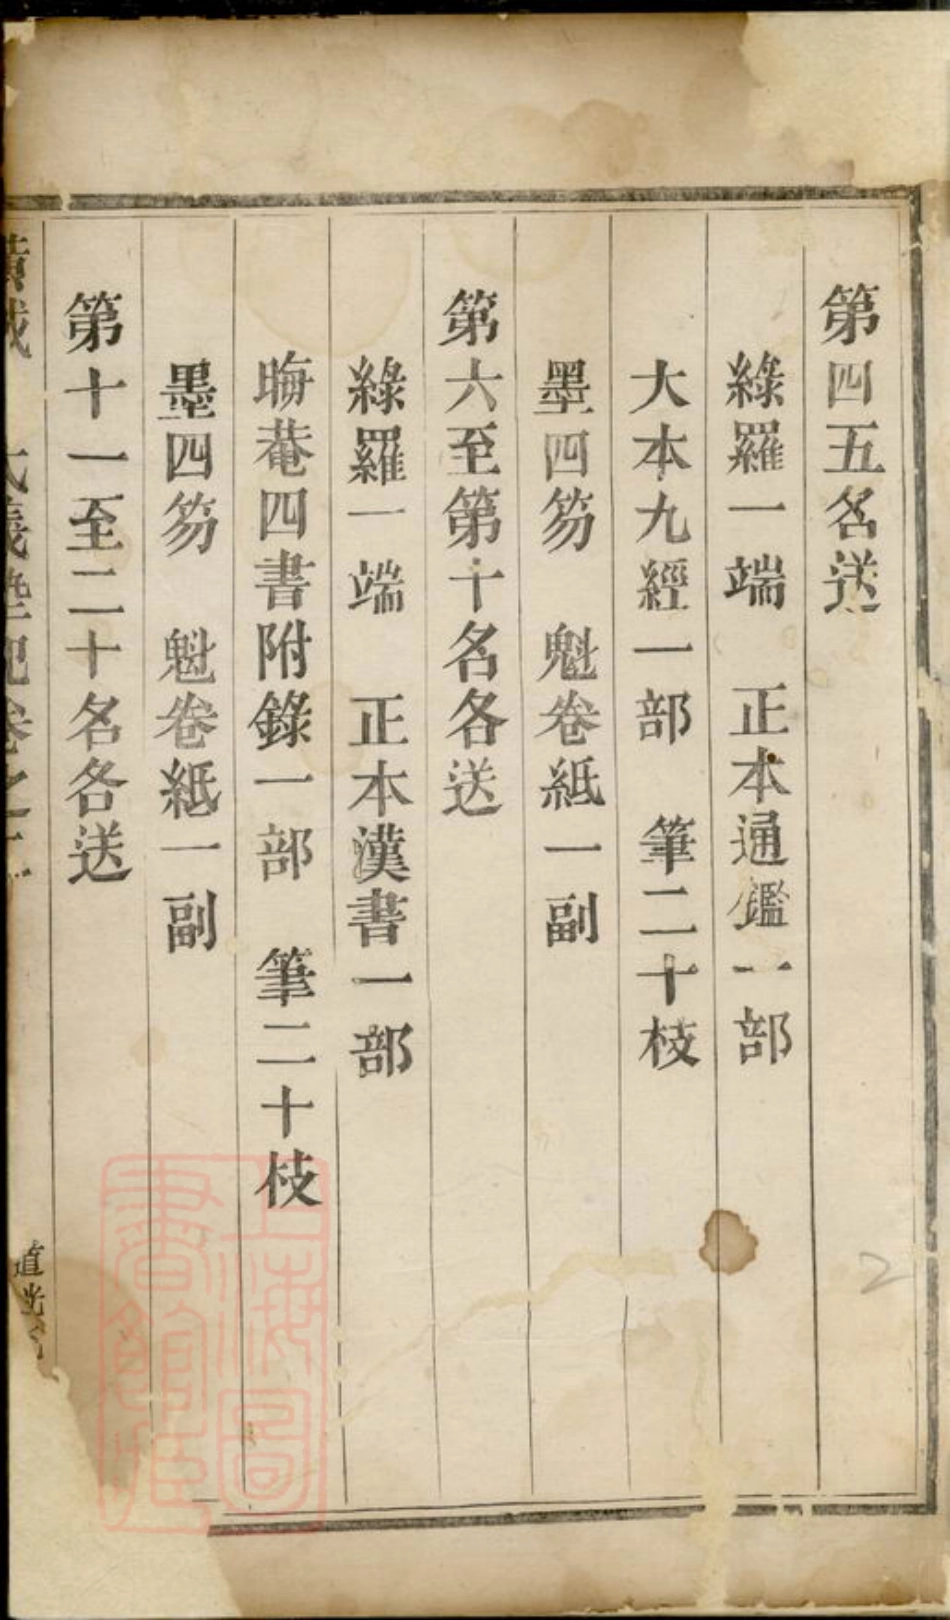 第四五名送
綠羅一端　正本通鑑一部
大本九經一部　筆二十枝
墨四笏　魁卷紙一副
第六至第十名各送
綠羅一端　正本漢書一部
晦菴四書附錄一部　筆二十枝
墨四笏　魁卷紙一副
第十一至二十名各送
卷之
道光
上海圖
書館藏
2